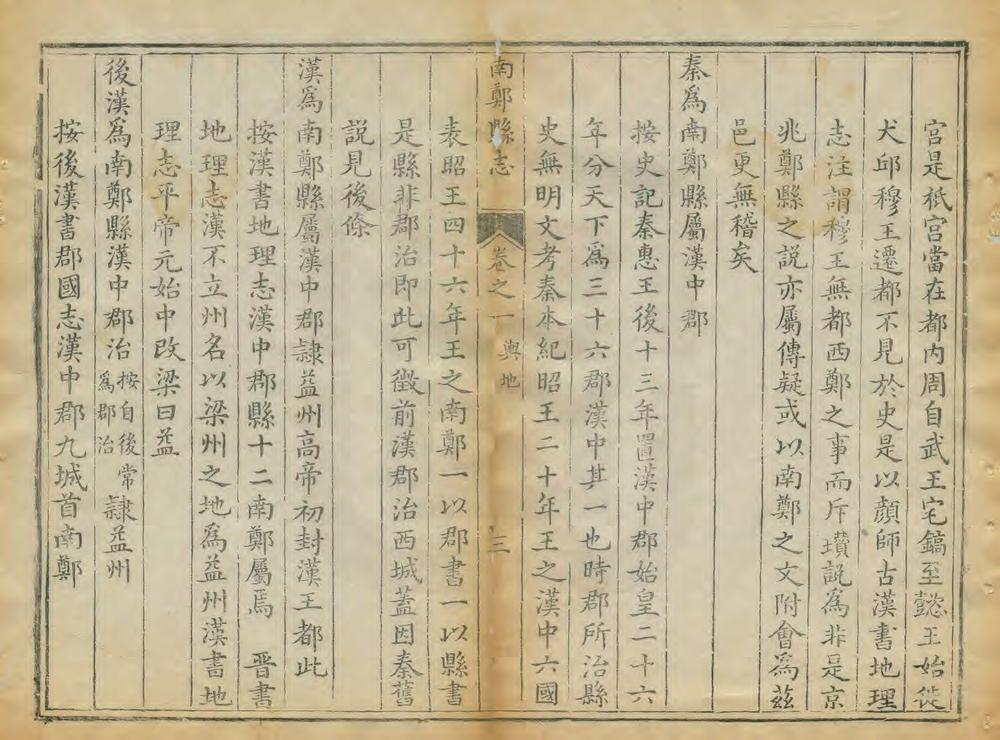 宮是祇宮當在都内周自武王宅鎬至懿王始徙
犬邱穆王遷都不見於史是以顔師古漢書地理
志注謂穆王無都西鄭之事而斥瓚説爲非是京
兆鄭縣之説亦屬傳疑或以南鄭之文附會爲茲
邑更無稽矣
秦爲南鄭縣屬漢中郡
按史記秦惠王後十三年置漢中郡始皇二十六
年分天下爲三十六郡漢中其一也時郡所治縣
史無明文考秦本紀昭王二十年王之漢中六國
南鄭縣志 卷之一 輿地 三
表昭王四十六年王之南鄭一以郡書一以縣書
是縣非郡治即此可徵前漢郡治西城蓋因秦舊
説見後條
漢爲南鄭縣屬漢中郡隸益州高帝初封漢王都此
按漢書地理志漢中郡縣十二南鄭屬焉 晉書
地理志漢不立州名以梁州之地爲益州漢書地
理志平帝元始中改梁曰益
後漢爲南鄭縣漢中郡治按自後常爲郡治隸益州
按後漢書郡國志漢中郡九城首南鄭